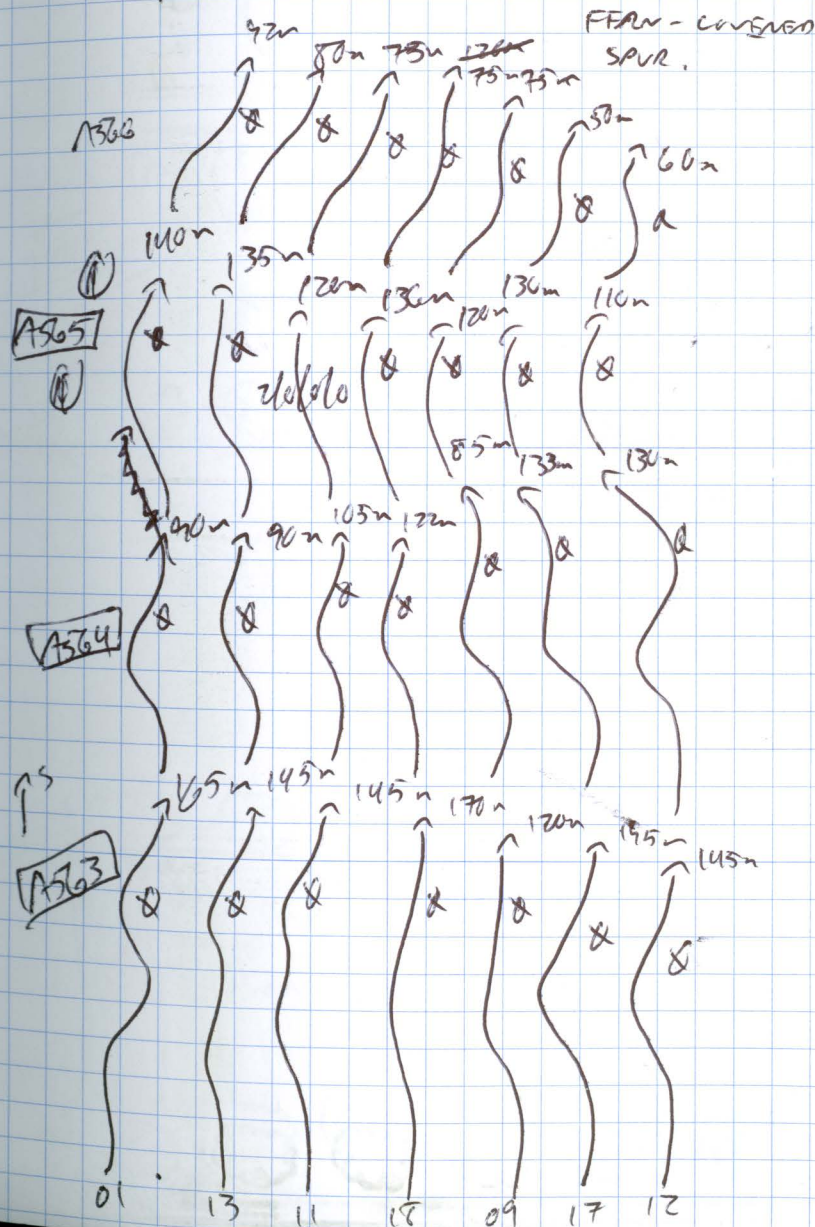 FERN-COVERED
SPUR.
92m
80m 75m 120m
75m 75m
50m
60m
A566
140m 135m 120m 130m 130m 110m
120m
A565
2/0/0/0
85m 133m 130m
90m 90m 105m 122m
A564
S
165m 145m 145m 170m 120m 145m
145m
A563
01 13 11 18 09 17 12